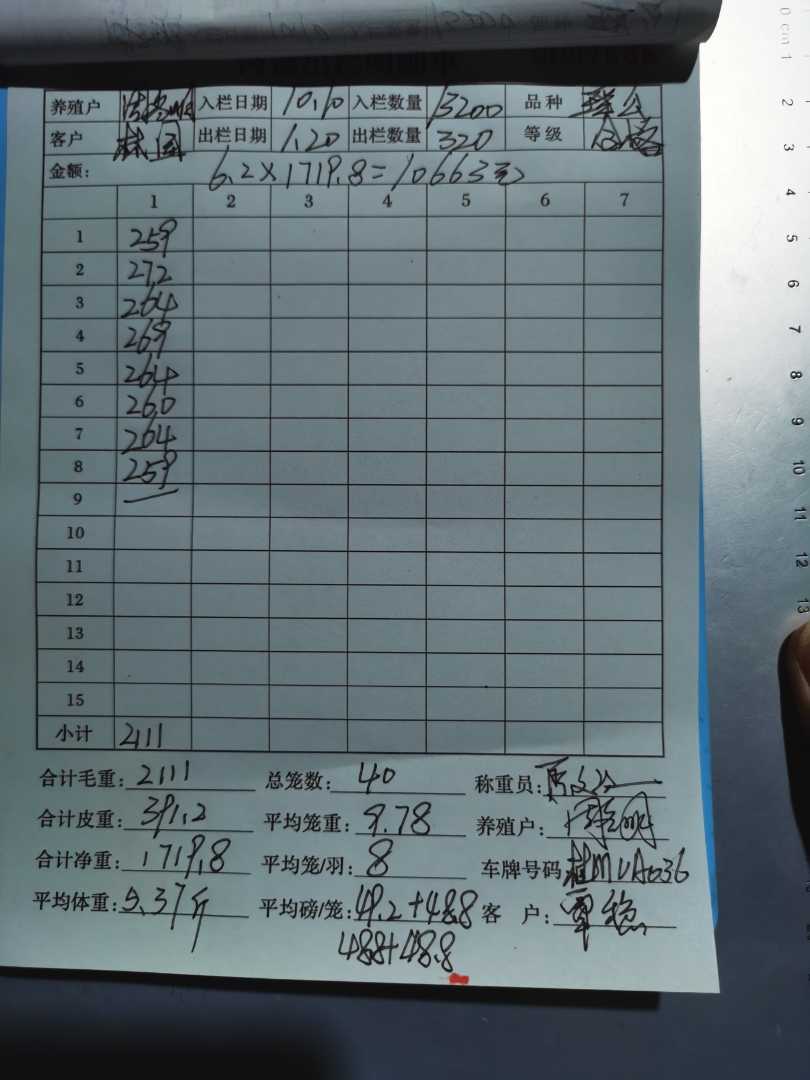 养殖户 入栏日期 10.10 入栏数量 13200 品种
客户 出栏日期 1.20 出栏数量 320 等级
金额: 6.2×1719.8=10663元
1 2 3 4 5 6 7
1 259
2 272
3 264
4 269
5 264
6 260
7 264
8 259
9 —
10
11
12
13
14
15
小计 2111
合计毛重: 2111 总笼数: 40 称重员:
合计皮重: 391.2 平均笼重: 9.78 养殖户:
合计净重: 1719.8 平均笼/羽: 8 车牌号码 桂MUA036
平均体重: 5.37斤 平均磅/笼: 49.2+48.8 客 户: 覃稳
48.8+48.8
0 cm 1 2 3 4 5 6 7 8 9 10 11 12 13